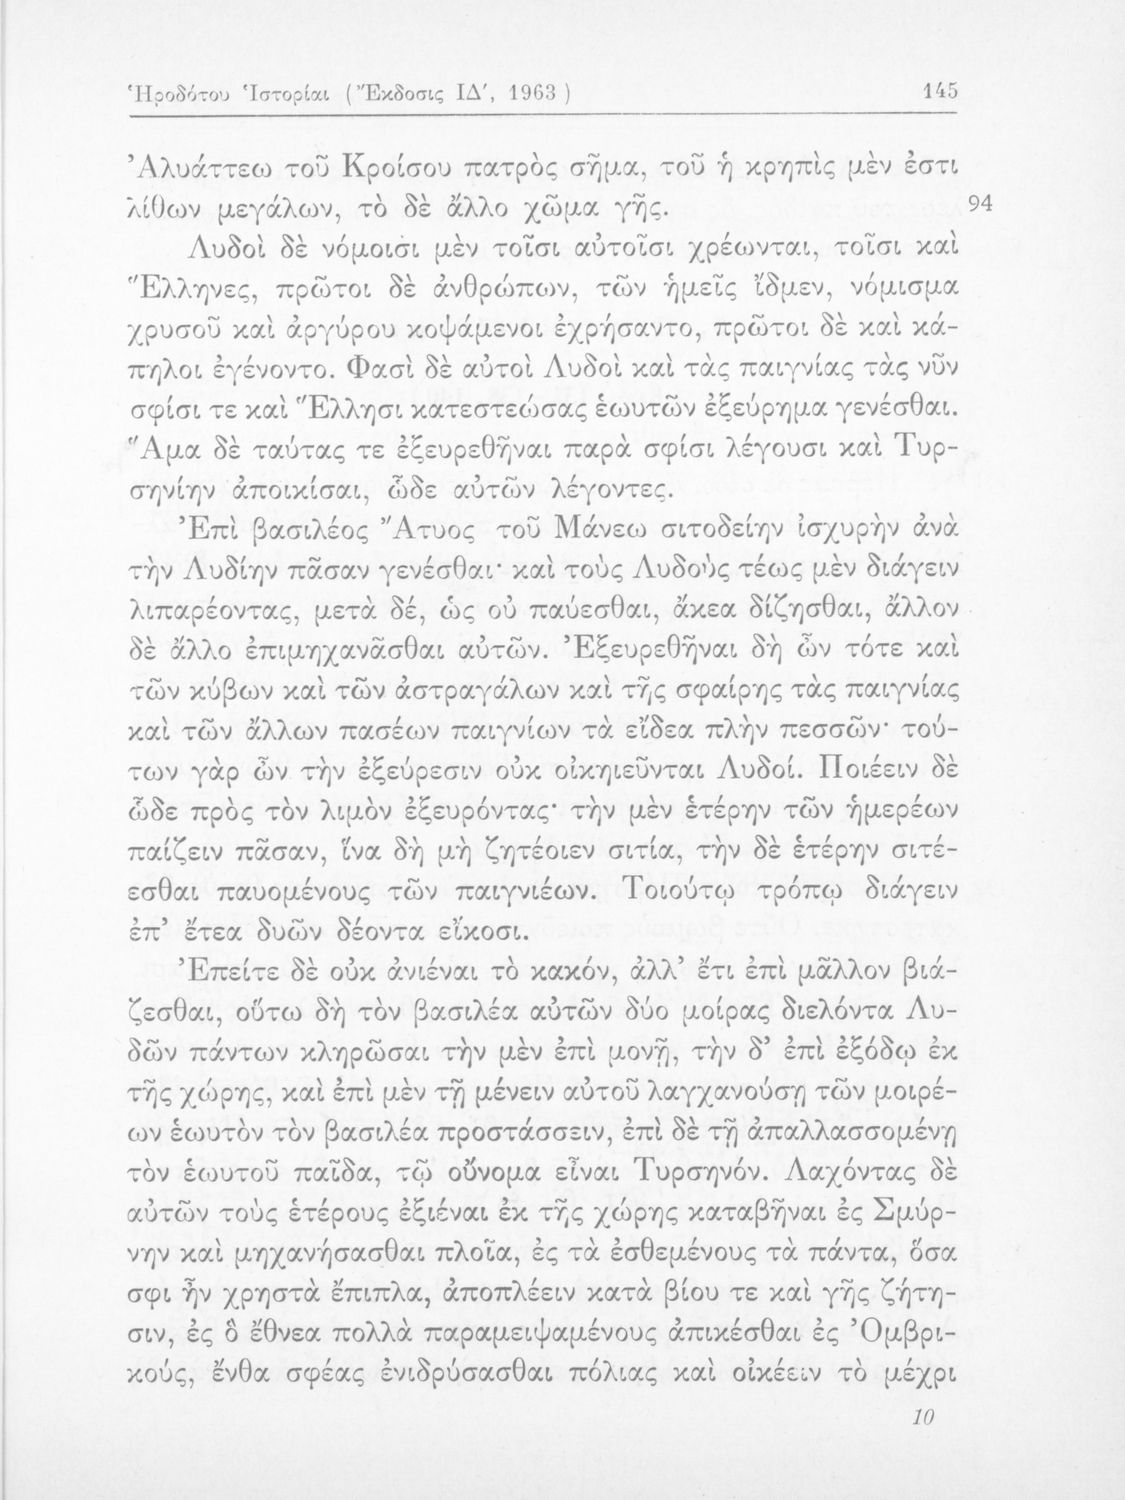 Ἡροδότου Ἱστορίαι ( Ἔκδοσις ΙΔʹ, 1963 ) 145
Ἀλυάττεω τοῦ Κροίσου πατρὸς σῆμα, τοῦ ἡ κρηπὶς μὲν ἐστι
λίθων μεγάλων, τὸ δὲ ἄλλο χῶμα γῆς. 94
Λυδοὶ δὲ νόμοισι μὲν τοῖσι αὐτοῖσι χρέωνται, τοῖσι καὶ
Ἕλληνες, πρῶτοι δὲ ἀνθρώπων, τῶν ἡμεῖς ἴδμεν, νόμισμα
χρυσοῦ καὶ ἀργύρου κοψάμενοι ἐχρήσαντο, πρῶτοι δὲ καὶ κά-
πηλοι ἐγένοντο. Φασὶ δὲ αὐτοὶ Λυδοὶ καὶ τὰς παιγνίας τὰς νῦν
σφίσι τε καὶ Ἕλλησι κατεστεώσας ἑωυτῶν ἐξεύρημα γενέσθαι.
Ἅμα δὲ ταύτας τε ἐξευρεθῆναι παρὰ σφίσι λέγουσι καὶ Τυρ-
σηνίην ἀποικίσαι, ὧδε αὐτῶν λέγοντες.
Ἐπὶ βασιλέος Ἄτυος τοῦ Μάνεω σιτοδείην ἰσχυρὴν ἀνὰ
τὴν Λυδίην πᾶσαν γενέσθαι· καὶ τοὺς Λυδοὺς τέως μὲν διάγειν
λιπαρέοντας, μετὰ δέ, ὡς οὐ παύεσθαι, ἄκεα δίζησθαι, ἄλλον
δὲ ἄλλο ἐπιμηχανᾶσθαι αὐτῶν. Ἐξευρεθῆναι δὴ ὦν τότε καὶ
τῶν κύβων καὶ τῶν ἀστραγάλων καὶ τῆς σφαίρης τὰς παιγνίας
καὶ τῶν ἄλλων πασέων παιγνίων τὰ εἴδεα πλὴν πεσσῶν· τού-
των γὰρ ὦν τὴν ἐξεύρεσιν οὐκ οἰκηιεῦνται Λυδοί. Ποιέειν δὲ
ὧδε πρὸς τὸν λιμὸν ἐξευρόντας· τὴν μὲν ἑτέρην τῶν ἡμερέων
παίζειν πᾶσαν, ἵνα δὴ μὴ ζητέοιεν σιτία, τὴν δὲ ἑτέρην σιτέ-
εσθαι παυομένους τῶν παιγνιέων. Τοιούτῳ τρόπῳ διάγειν
ἐπ’ ἔτεα δυῶν δέοντα εἴκοσι.
Ἐπείτε δὲ οὐκ ἀνιέναι τὸ κακόν, ἀλλ’ ἔτι ἐπὶ μᾶλλον βιά-
ζεσθαι, οὕτω δὴ τὸν βασιλέα αὐτῶν δύο μοίρας διελόντα Λυ-
δῶν πάντων κληρῶσαι τὴν μὲν ἐπὶ μονῇ, τὴν δ’ ἐπὶ ἐξόδῳ ἐκ
τῆς χώρης, καὶ ἐπὶ μὲν τῇ μένειν αὐτοῦ λαγχανούσῃ τῶν μοιρέ-
ων ἑωυτὸν τὸν βασιλέα προστάσσειν, ἐπὶ δὲ τῇ ἀπαλλασσομένῃ
τὸν ἑωυτοῦ παῖδα, τῷ οὔνομα εἶναι Τυρσηνόν. Λαχόντας δὲ
αὐτῶν τοὺς ἑτέρους ἐξιέναι ἐκ τῆς χώρης καταβῆναι ἐς Σμύρ-
νην καὶ μηχανήσασθαι πλοῖα, ἐς τὰ ἐσθεμένους τὰ πάντα, ὅσα
σφι ἦν χρηστὰ ἔπιπλα, ἀποπλέειν κατὰ βίου τε καὶ γῆς ζήτη-
σιν, ἐς ὃ ἔθνεα πολλὰ παραμειψαμένους ἀπικέσθαι ἐς Ὀμβρι-
κούς, ἔνθα σφέας ἐνιδρύσασθαι πόλιας καὶ οἰκέειν τὸ μέχρι
10